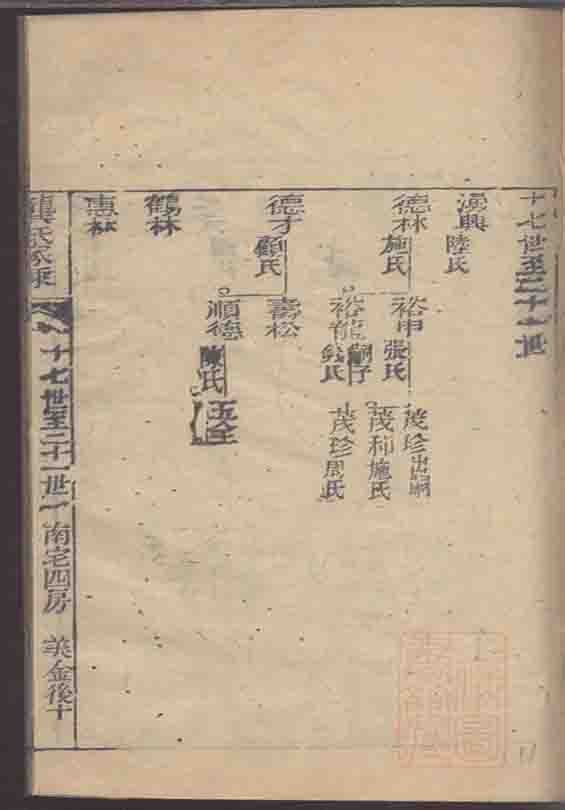 十七世至二十一世
興 陸氏
德林 施氏
裕申 張氏
茂珍 出嗣
茂和 施氏
裕龍 嗣子
錢氏
茂珍 周氏
德才 顧氏
壽松
順德 陳氏
五全
鶴林
惠林
龔氏家乘
十七世至二十一世 南宅四房 美金後十
11